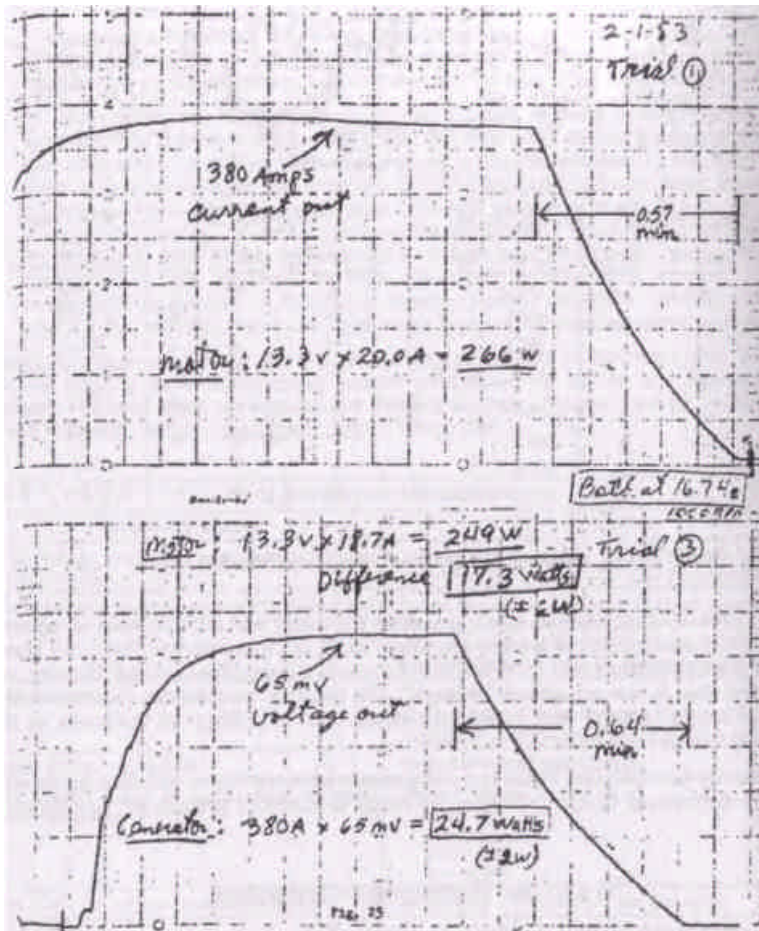 2-1-83
Trial ①
4
380 Amps
current out
0.57
min
2
Motor: 13.3 V x 20.0 A = 266 W
0
Both at 16.7 Hz
Motor: 13.3 V x 18.7 A = 249 W
Trial ③
Difference 17.3 Watts
65 mV
voltage out
0.64
min
Generator: 380A x 65 mV = 24.7 Watts
(±2W)